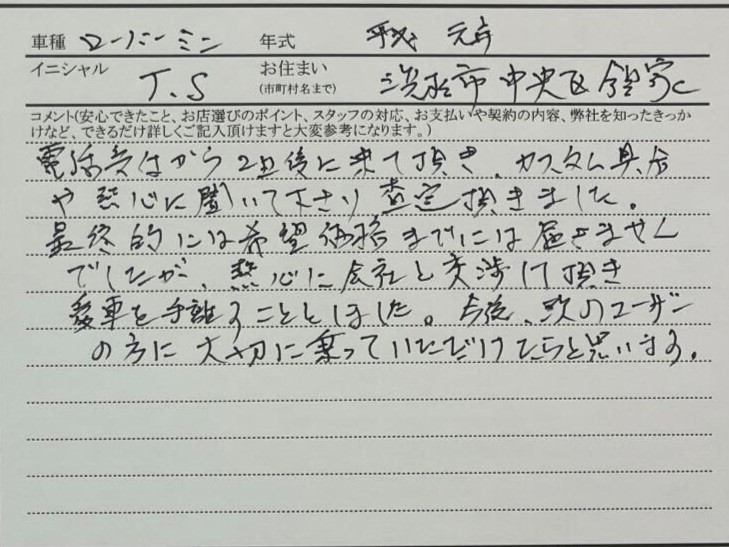 車種 ローバーミニ 年式 平成 元年
イニシャル T.S お住まい(市町村名まで) 浜松市中央区
コメント(安心できたこと、お店選びのポイント、スタッフの対応、お支払いや契約の内容、弊社を知ったきっか
けなど、できるだけ詳しくご記入頂けますと大変参考になります。)
電話受付から2日後に来て頂き、カスタム具合
や熱心に聞いて下さり査定頂きました。
最終的には希望価格までには届きません
でしたが、熱心に会社と交渉して頂き
愛車を手離すことにしました。今後、次のユーザー
の方に大切に乗っていただけたらと思います。